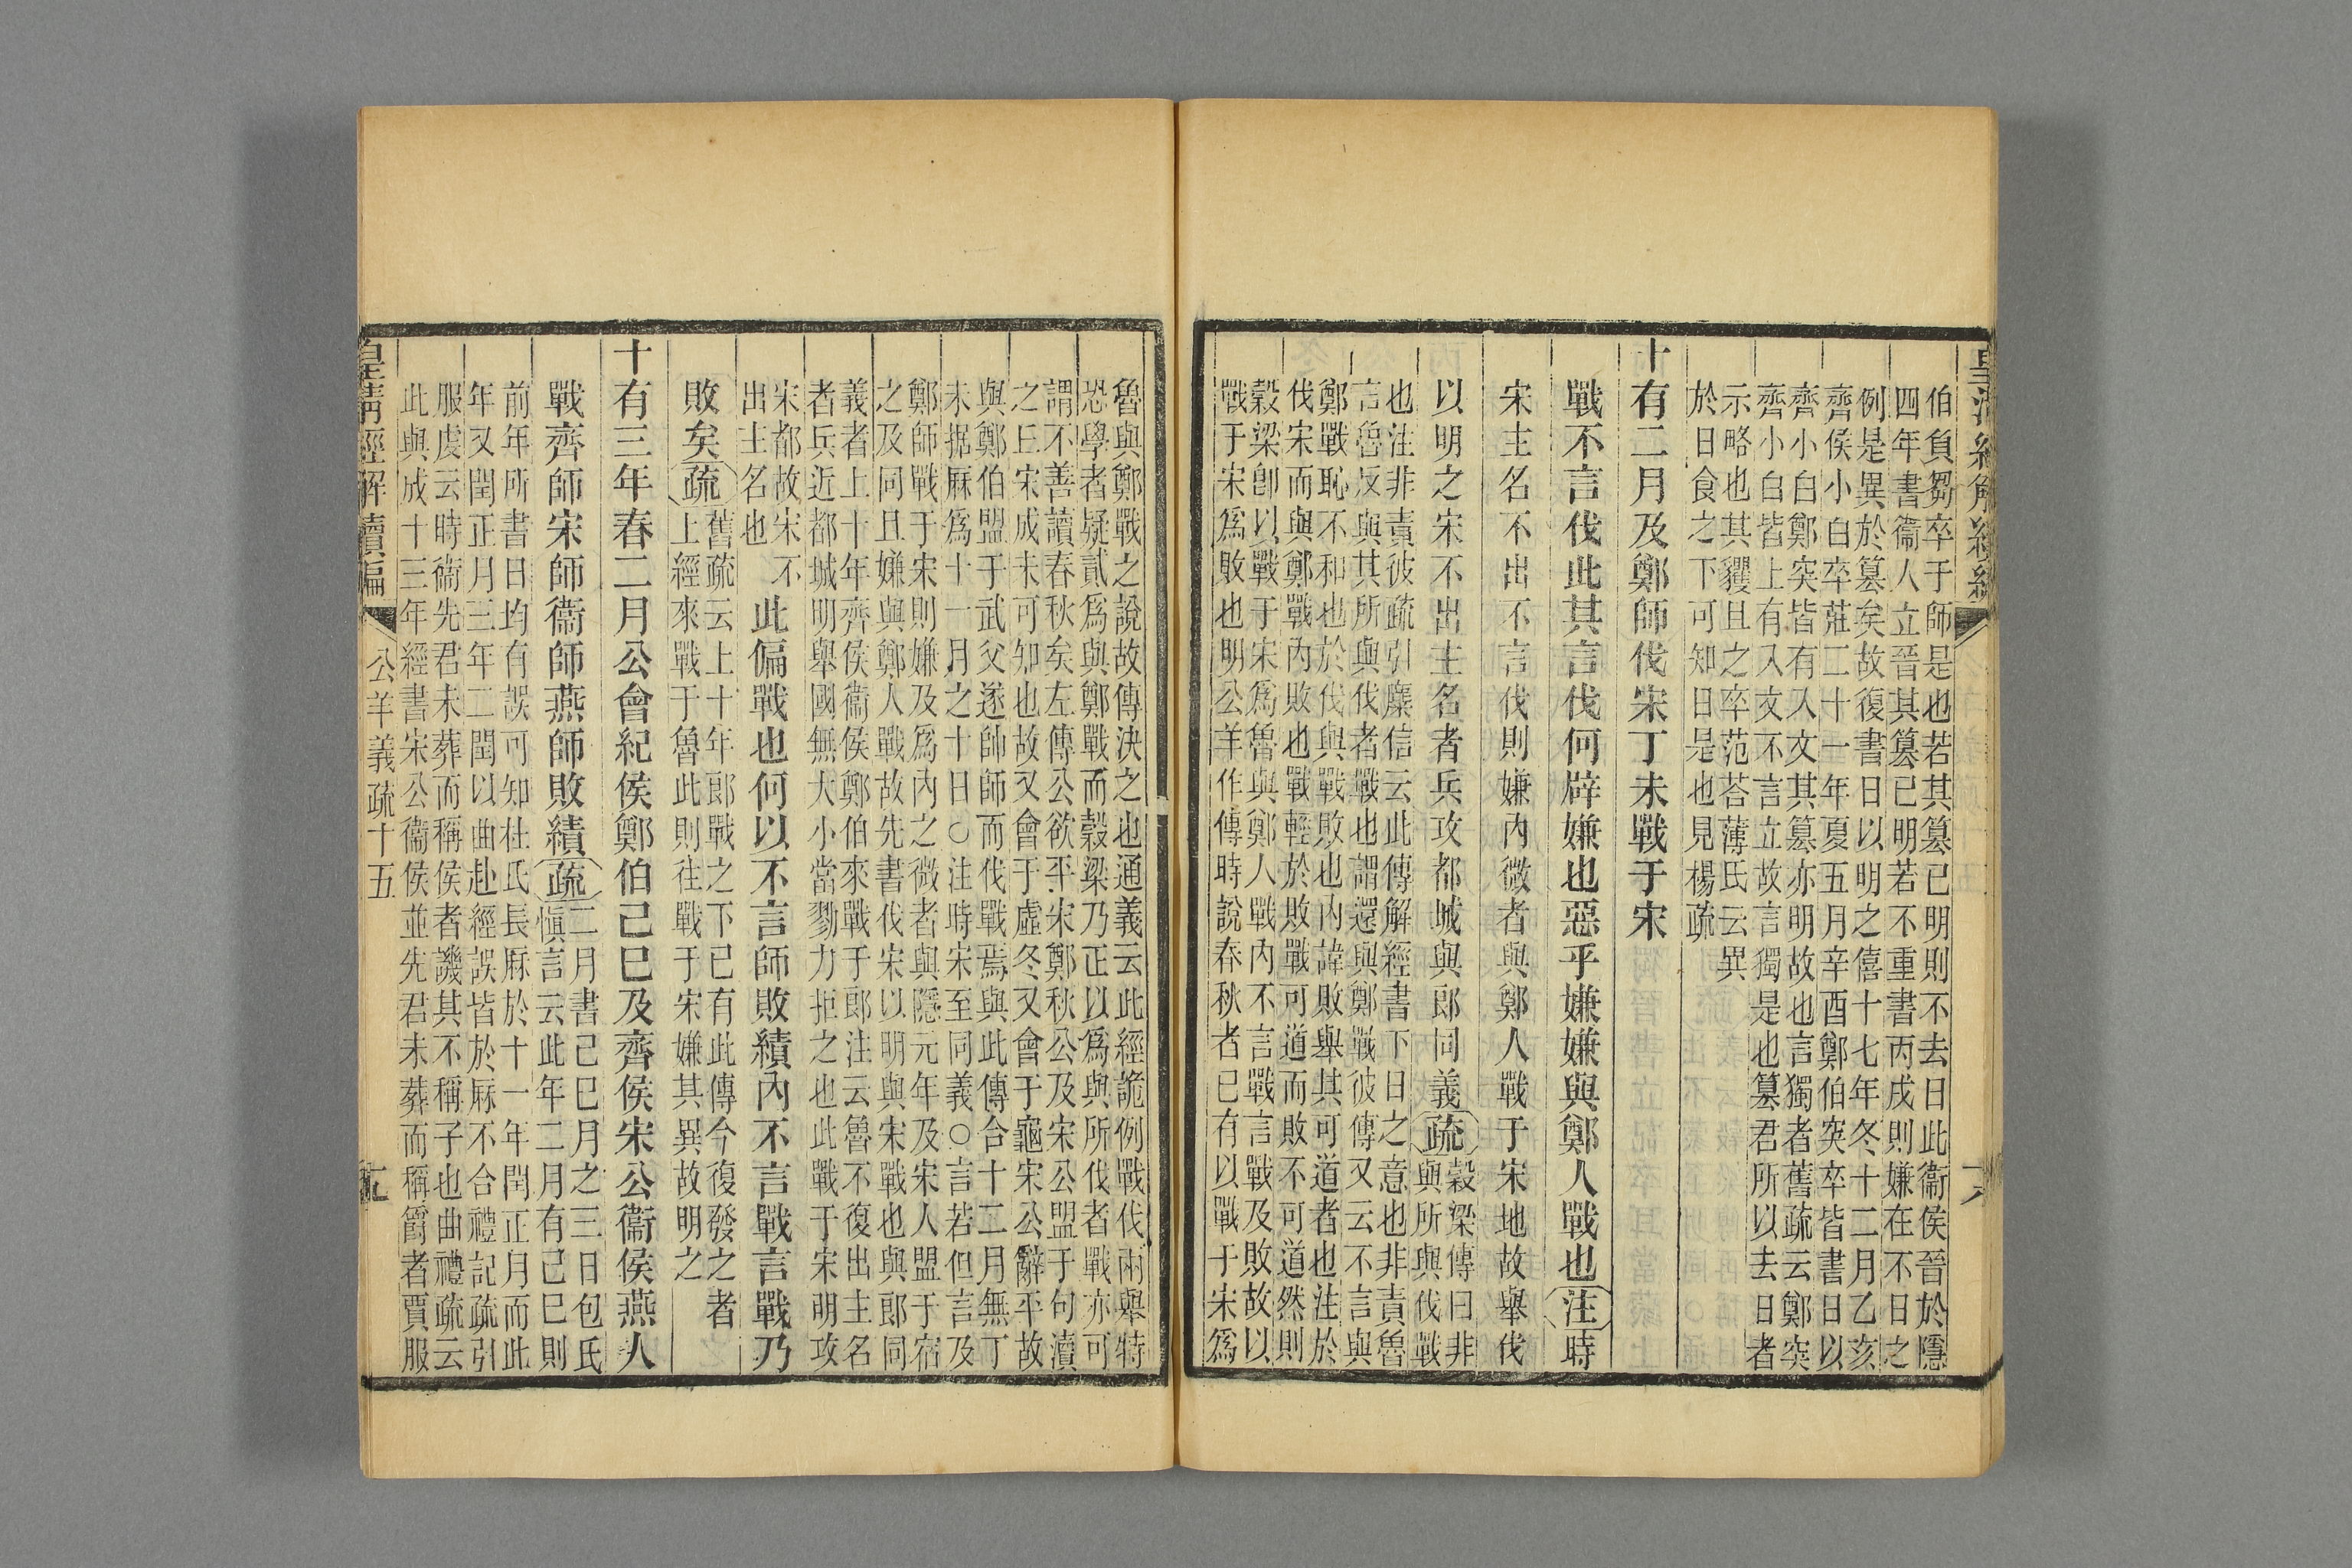 皇清經解續編
伯負芻卒于師是也若其篡已明則不去日此衞侯晉於隱
四年書衞人立晉其篡已明若不重書丙戌則嫌在不日之
例是異於篡矣故復書日以明之僖十七年冬十二月乙亥
齊侯小白卒莊二十一年夏五月辛酉鄭伯突卒皆書日以
齊小白鄭突皆有入文其篡亦明故也言獨者舊疏云鄭突
齊小白皆上有入文不言立故言獨是也篡君所以去日者
示略也其貜且之卒范荅薄氏云異
於日食之下可知日是也見楊疏
十有二月及鄭師伐宋丁未戰于宋
戰不言伐此其言伐何辟嫌也惡乎嫌嫌與鄭人戰也注時
宋主名不出不言伐則嫌內微者與鄭人戰于宋地故舉伐
以明之宋不出主名者兵攻都城與郎同義疏穀梁傳曰非
與所與伐戰
也注非責彼疏引麋信云此傳解經書下日之意也非責魯
言魯反與其所與伐者戰也謂還與鄭戰彼傳又云不言與
鄭戰恥不和也於伐與戰敗也內諱敗舉其可道者也注於
伐宋而與鄭戰內敗也戰輕於敗戰可道而敗不可道然則
穀梁卽以戰于宋爲魯與鄭人戰內不言戰言戰及敗故以
戰于宋爲敗也明公羊作傳時說春秋者已有以戰于宋爲
魯與鄭戰之說故傳決之也通義云此經詭例戰伐兩舉特
恐學者疑貳爲與鄭戰而穀梁乃正以爲與所伐者戰亦可
謂不善讀春秋矣左傳公欲平宋鄭秋公及宋公盟于句瀆
之丘宋成未可知也故又會于虛冬又會于龜宋公辭平故
與鄭伯盟于武父遂帥師而伐戰焉與此傳合十二月無丁
未據厤爲十一月之十日○注時宋至同義○言若但言及
鄭師戰于宋則嫌及爲內之微者與隱元年及宋人盟于宿
之及同且嫌與鄭人戰故先書伐宋以明與宋戰也與郎同
義者上十年齊侯衞侯鄭伯來戰于郎注云魯不復出主名
者兵近都城明舉國無大小當勠力拒之也此戰于宋明攻
宋都故宋不
出主名也
此偏戰也何以不言師敗績內不言戰言戰乃
敗矣疏舊疏云上十年郎戰之下已有此傳今復發之者
上經來戰于魯此則往戰于宋嫌其異故明之
十有三年春二月公會紀侯鄭伯己巳及齊侯宋公衞侯燕人
戰齊師宋師衞師燕師敗績疏二月書己巳月之三日包氏
愼言云此年二月有己巳則
前年所書日均有誤可知杜氏長厤於十一年閏正月而此
年又閏正月三年二閏以曲赴經誤皆於厤不合禮記疏引
服虔云時衞先君未葬而稱侯者譏其不稱子也曲禮疏云
此與成十三年經書宋公衞侯並先君未葬而稱爵者賈服
皇清經解續編
公羊義疏十五